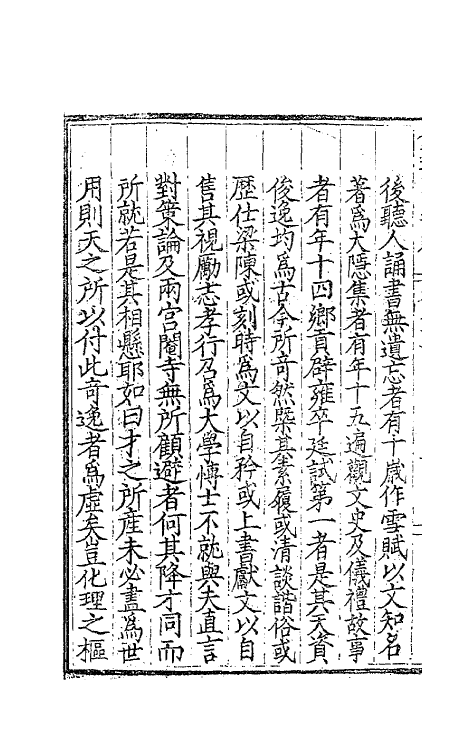 後聽人誦書無遺忘者有十歲作雪賦以文知名
著爲大隱集者有年十五遍觀文史及儀禮故事
者有年十四鄉貢辟雍卒廷試第一者是其天資
俊逸均爲古今所奇然槩其素履或清談諧俗或
歷仕梁陳或刻時爲文以自矜或上書獻文以自
售其視勵志孝行召爲大學博士不就與夫直言
對策論及兩宫閹寺無所顧避者何其降才同而
所就若是其相懸耶如曰才之所産未必盡爲世
用則天之所以付此奇逸者爲虚矣豈化理之樞